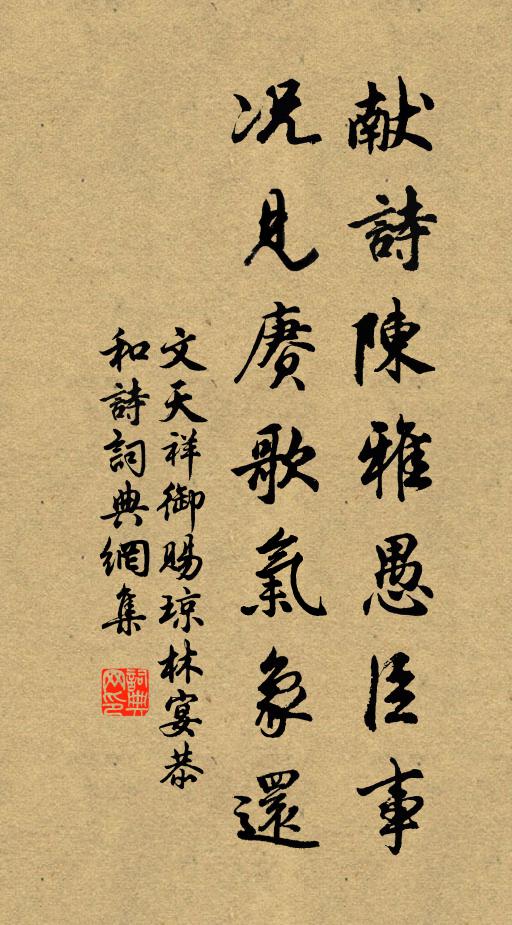 献詩陳雅愚臣事
况見赓歌氣象還
文天祥御賜琼林宴恭
和詩詞典網集
詞典
网印